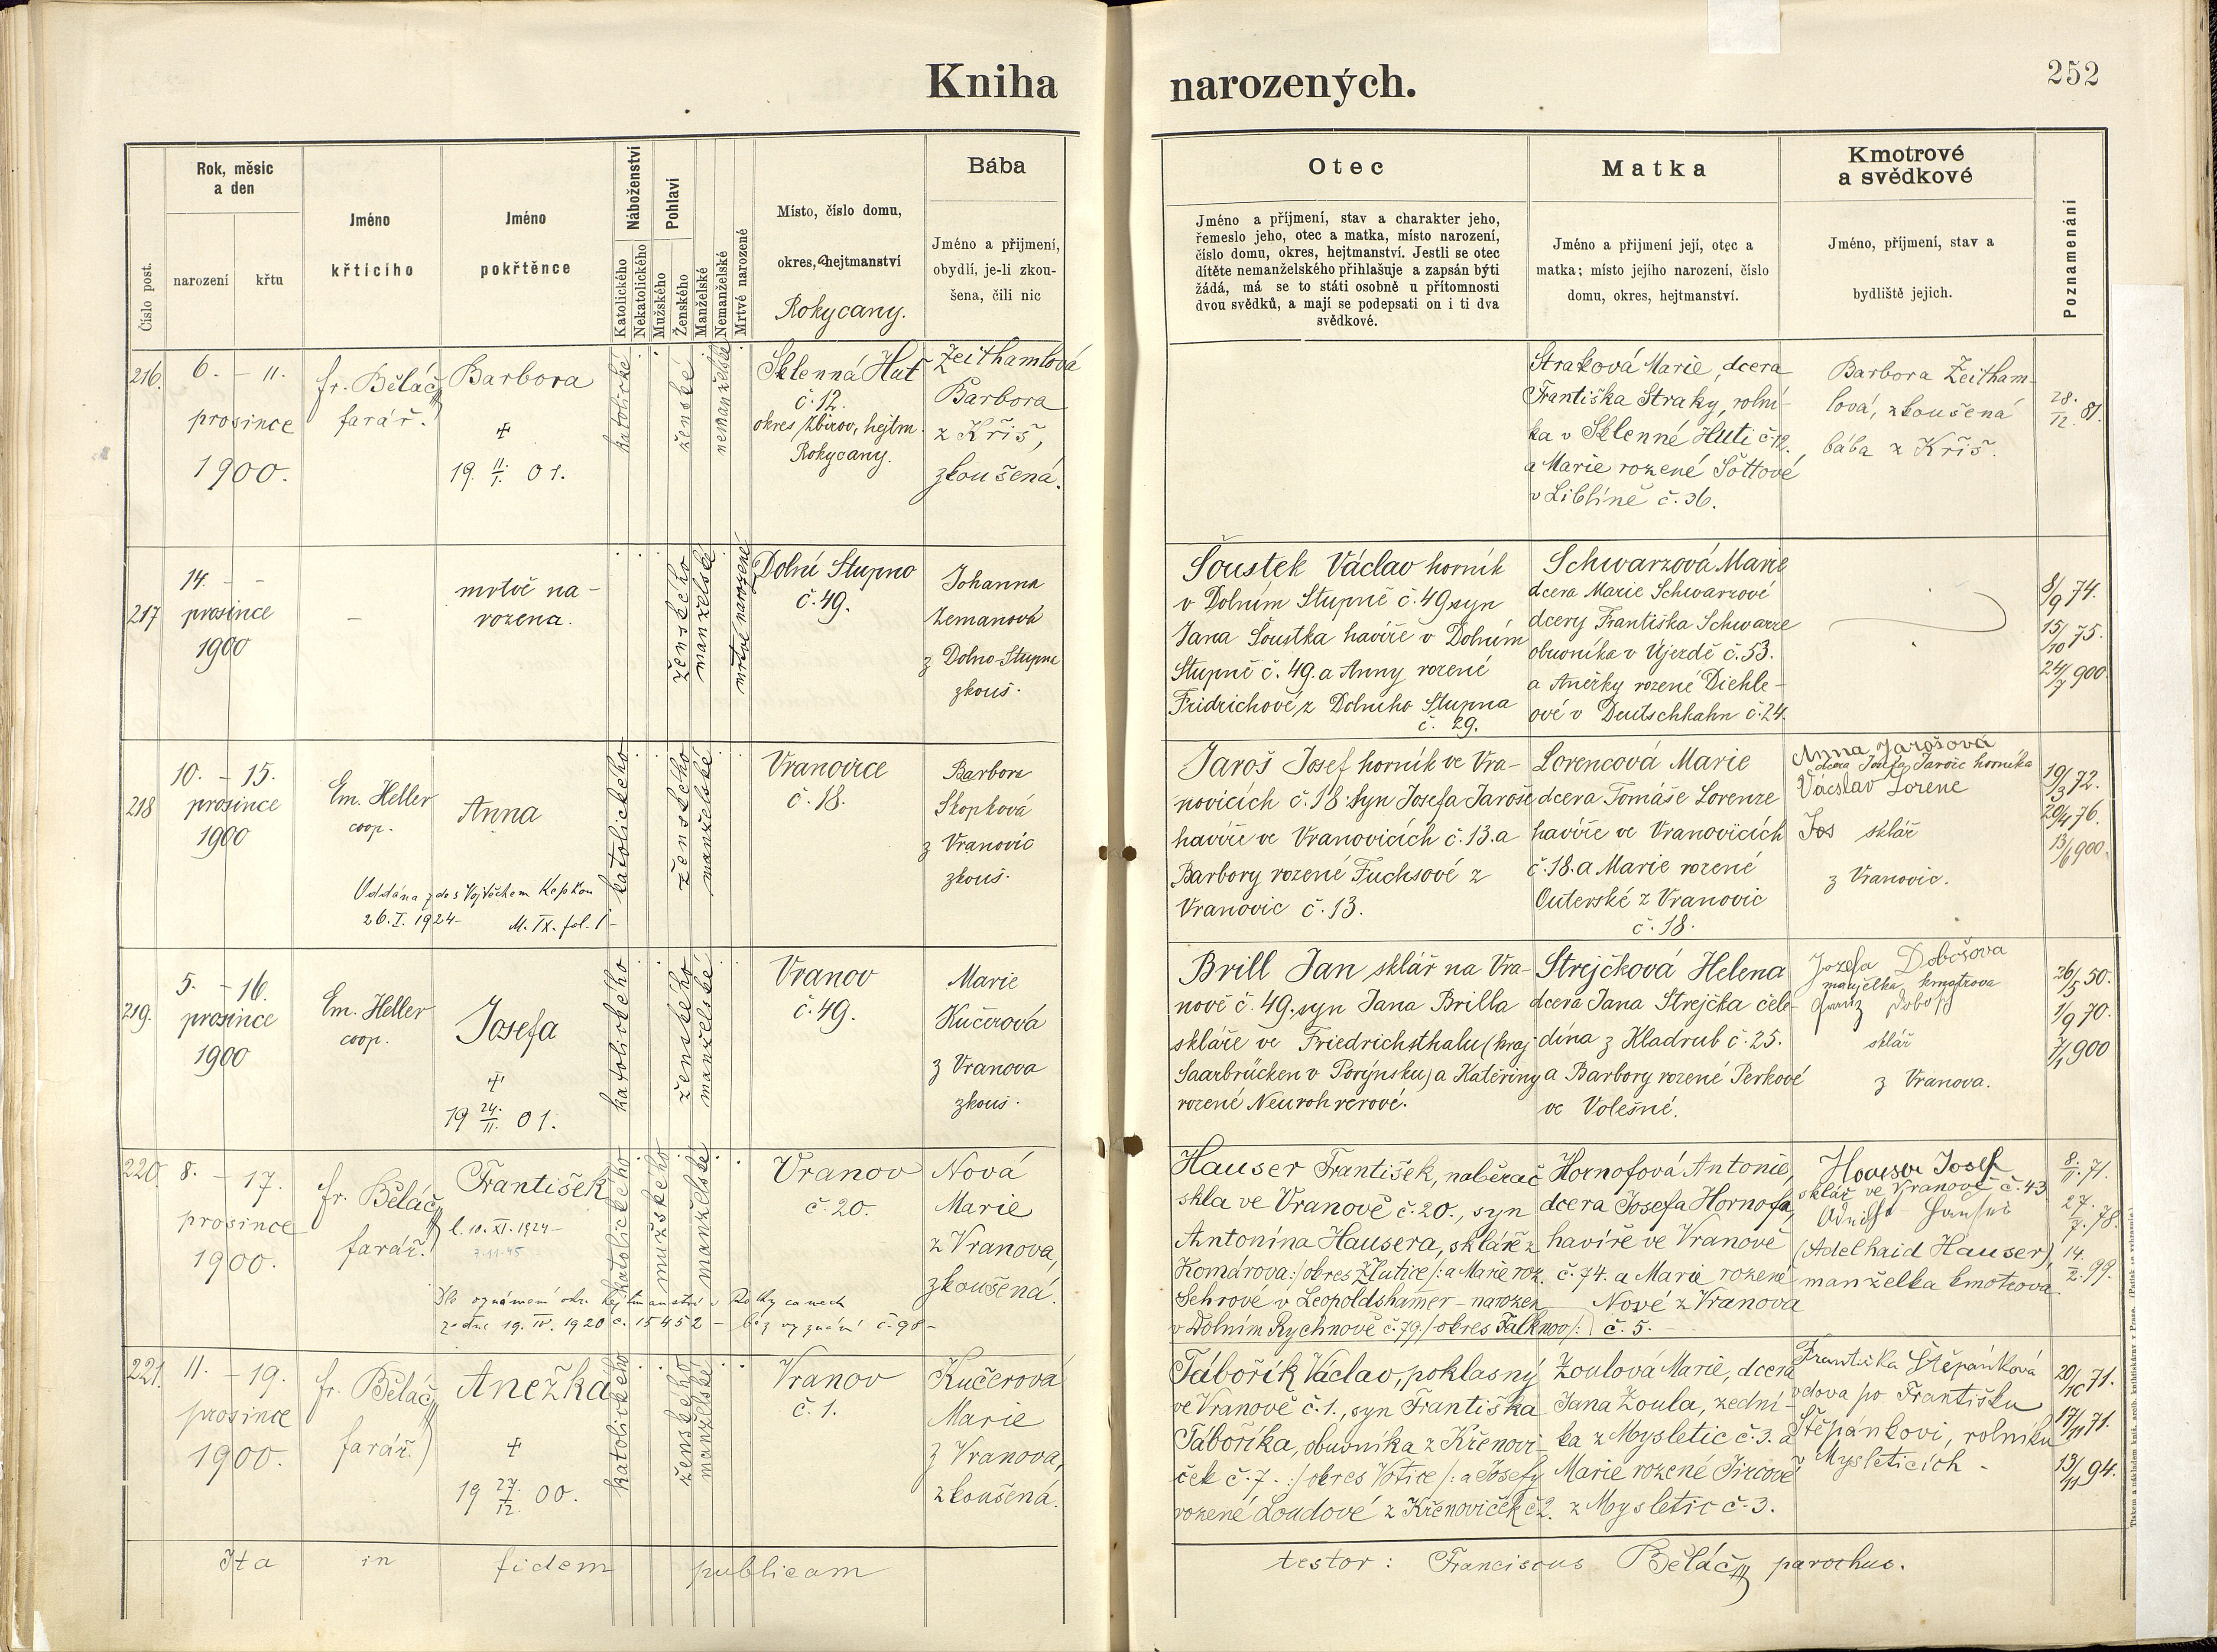 Kniha narozených.
252
Číslo post.
Rok, měsíc
a den
narození
křtu
Jméno
křtícího
Jméno
pokřtěnce
Náboženství
Katolického
Nekatolického
Pohlaví
Mužského
Ženského
Manželské
Nemanželské
Mrtvě narozené
Místo, číslo domu,
okres, hejtmanství
Rokycany.
Bába
Jméno a přijmení,
obydlí, je-li zkou-
šena, čili nic
Otec
Jméno a příjmení, stav a charakter jeho,
řemeslo jeho, otec a matka, místo narození,
číslo domu, okres, hejtmanství. Jestli se otec
dítěte nemanželského přihlašuje a zapsán býti
žádá, má se to státi osobně u přítomnosti
dvou svědků, a mají se podepsati on i ti dva
svědkové.
Matka
Jméno a přijmení její, otec a
matka; místo jejího narození, číslo
domu, okres, hejtmanství.
Kmotrové
a svědkové
Jméno, příjmení, stav a
bydliště jejich.
Poznamenání
216.
6. – 11.
prosince
1900.
fr. Běláč
farář.
Barbora
+
19 11/1. 01.
katolické
ženské
nemanželské
Sklenná Huť
č. 12.
okres Zbirov, hejtm.
Rokycany.
Zeithamlová
Barbora
z Kříš,
zkoušená.
Straková Marie, dcera
Františka Straky, rolní-
ka v Sklenné Huti č. 12.
a Marie rozené Šottové
v Liblíně č. 36.
Barbora Zeitham-
lová, zkoušená
bába z Kříš.
28./12. 81.
217
14. – –
prosince
1900
–
mrtvě na-
rozena.
ženského
manželské
mrtvě narozené
Dolní Stupno
č. 49.
Johanna
Zemanová
z Dolno-Stupna
zkouš.
Šoustek Václav horník
v Dolním Stupně č. 49 syn
Jana Šoustka havíře v Dolním
Stupně č. 49. a Anny rozené
Fridrichové z Dolního Stupna
č. 29.
Schwarzová Marie
dcera Marie Schwarzové
dcery Františka Schwarze
obuvníka v Újezdě č. 53.
a Anežky rozené Diehle-
ové v Deutschkahn č. 24.
8/9 74.
15/10 75.
24/7 900.
218
10. – 15.
prosince
1900
Em. Heller
coop.
Anna
Oddána zde s Vojtěchem Kepkou
26. I. 1924 – M. IX. fol. 1 –
katolického
ženského
manželské
Vranovice
č. 18.
Barbora
Skopková
z Vranovic
zkouš.
Jaroš Josef horník ve Vra-
novicích č. 18. syn Josefa Jaroše
havíře ve Vranovicích č. 13. a
Barbory rozené Fuchsové z
Vranovic č. 13.
Lorencová Marie
dcera Tomáše Lorenze
havíře ve Vranovicích
č. 18. a Marie rozené
Outerské z Vranovic
č. 18.
Anna Jarošová
dcera Josefa Jaroše horníka
Václav Lorenc
sklář
z Vranovic.
19/3 72.
20/4 76.
13/6 900.
219.
5. – 16.
prosince
1900
Em. Heller
coop.
Josefa
+
19 24./II. 01.
katolického
ženského
manželské
Vranov
č. 49.
Marie
Kučerová
z Vranova
zkouš.
Brill Jan sklář na Vra-
nově č. 49. syn Jana Brilla
skláře ve Friedrichsthalu (kraj
Saarbrücken v Porýnsku) a Kateřiny
rozené Neurohrerové.
Strejčková Helena
dcera Jana Strejčka čele-
dína z Kladrub č. 25.
a Barbory rozené Perkové
ve Volešné.
Jozefa Dobošova
manželka kmotrova
sklář
z Vranova.
26/5 50.
1/9 70.
7/1 900
220.
8. – 17.
prosince
1900.
fr. Běláč
farář.
František
l. 10. XI. 1924 –
Dle oznámení okr. hejtmanství v Rokycanech
ze dne 19. IV. 1920 č. 15452 – bez vyznání č. 98 –
katolického
mužského
manželské
Vranov
č. 20.
Nová
Marie
z Vranova,
zkoušená.
Hauser František, naběrač
skla ve Vranově č. 20., syn
Antonína Hausera, skláře z
Komárova :/okres Žlutice/: a Marie roz.
Sehrové v Leopoldshammer – narozen
v Dolním Rychnově č. 79 /:okres Falknov/:
Hornofová Antonie,
dcera Josefa Hornofa,
havíře ve Vranově
č. 74. a Marie rozené
Nové z Vranova
č. 5. –
Hauser Josef
sklář ve Vranově č. 43
(Adelhaid Hauser),
manželka kmotrova.
8/II. 71.
27./7. 78.
14./2. 99.
221.
11. – 19.
prosince
1900.
fr. Běláč
farář.
Anežka
+
19 27./12. 00.
katolického
ženského
manželské
Vranov
č. 1.
Kučerová
Marie
z Vranova,
zkoušená.
Tábořík Václav, poklasný
ve Vranově č. 1., syn Františka
Táboříka, obuvníka z Křenovi-
ček č. 7. :/okres Votice/: a Josefy
rozené Loudové z Křenoviček č 2.
Zoulová Marie, dcera
Jana Zoula, zední-
ka z Mysletic č. 3. a
Marie rozené Jircové
z Mysletic č. 3.
Františka Štěpánková
vdova po Františku
Štěpánkovi, rolníku
v Mysleticích –
20/10 71.
17/11 71.
13/11 94.
Ita in fidem publicam testor: Franciscus Běláč parochus.